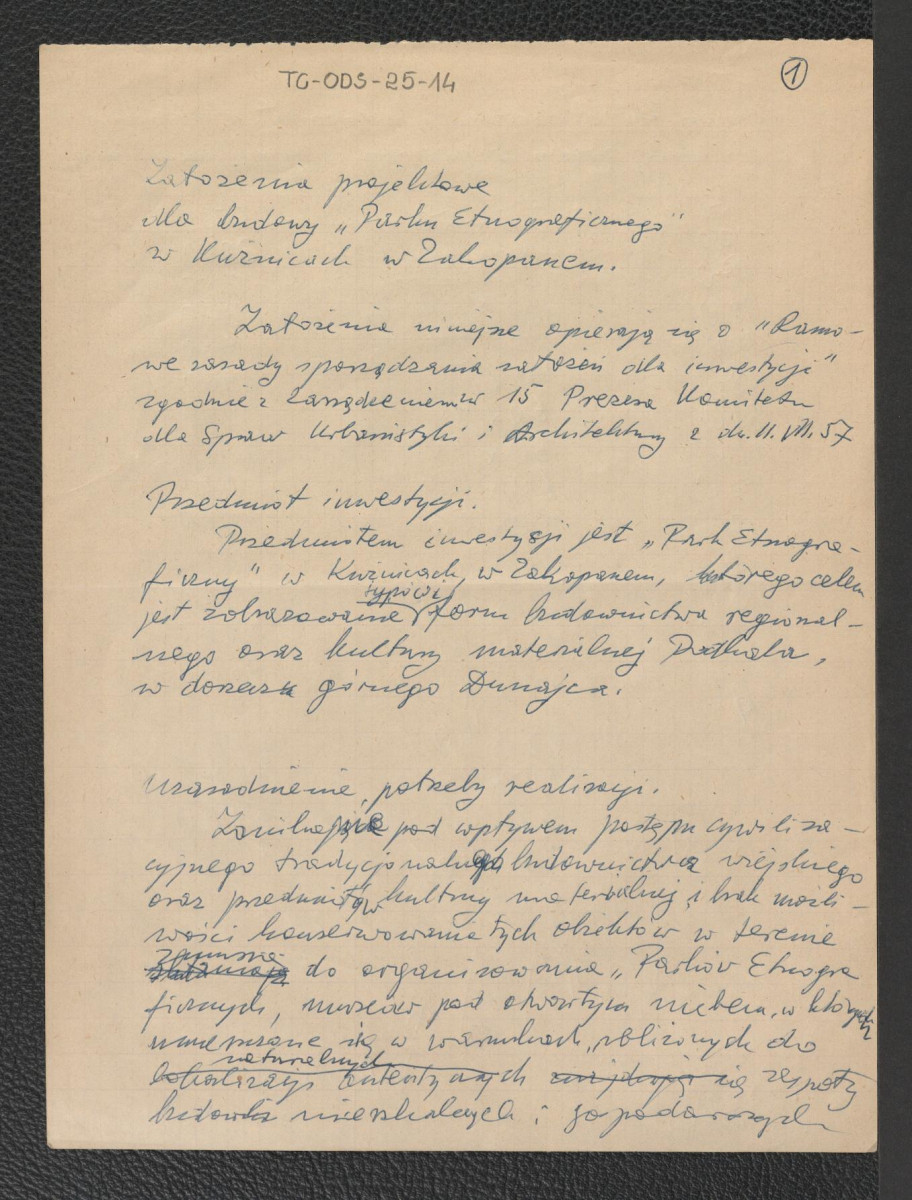 TG-ODS-25-14
1
Założenia projektowe
dla budowy „Parku Etnograficznego"
w Kuźnicach w Zakopanem.
Założenia niniejsze opierają się o "Ramo-
we zasady sporządzania założeń dla inwestycji"
zgodnie z Zarządzeniem nr 15 Prezesa Komitetu
dla Spraw Urbanistyki i Architektury z dn. 11. VII. 57
Przedmiot inwestycji.
Przedmiotem inwestycji jest „Park Etnogra-
ficzny" w Kuźnicach, w Zakopanem, którego celem
typów i
jest zobrazowanie form budownictwa regional-
nego oraz kultury materialnej Podhala,
w dorzeczu górnego Dunajca.
Uzasadnienie, potrzeby realizacji.
Zanikanie pod wpływem postępu cywiliza-
cyjnego tradycjonalnego budownictwa wiejskiego
oraz przedmiotów kultury materialnej i brak możli-
wości konserwowania tych obiektów w terenie
zmusza
do organizowania „Parków Etnogra
ficznych, muzeów pod otwartym niebem, w których
umieszcza się w warunkach, zbliżonych do
naturalnych
lokalizacji autentycznych znajdują się zespoły
budowli mieszkalnych i gospodarczych